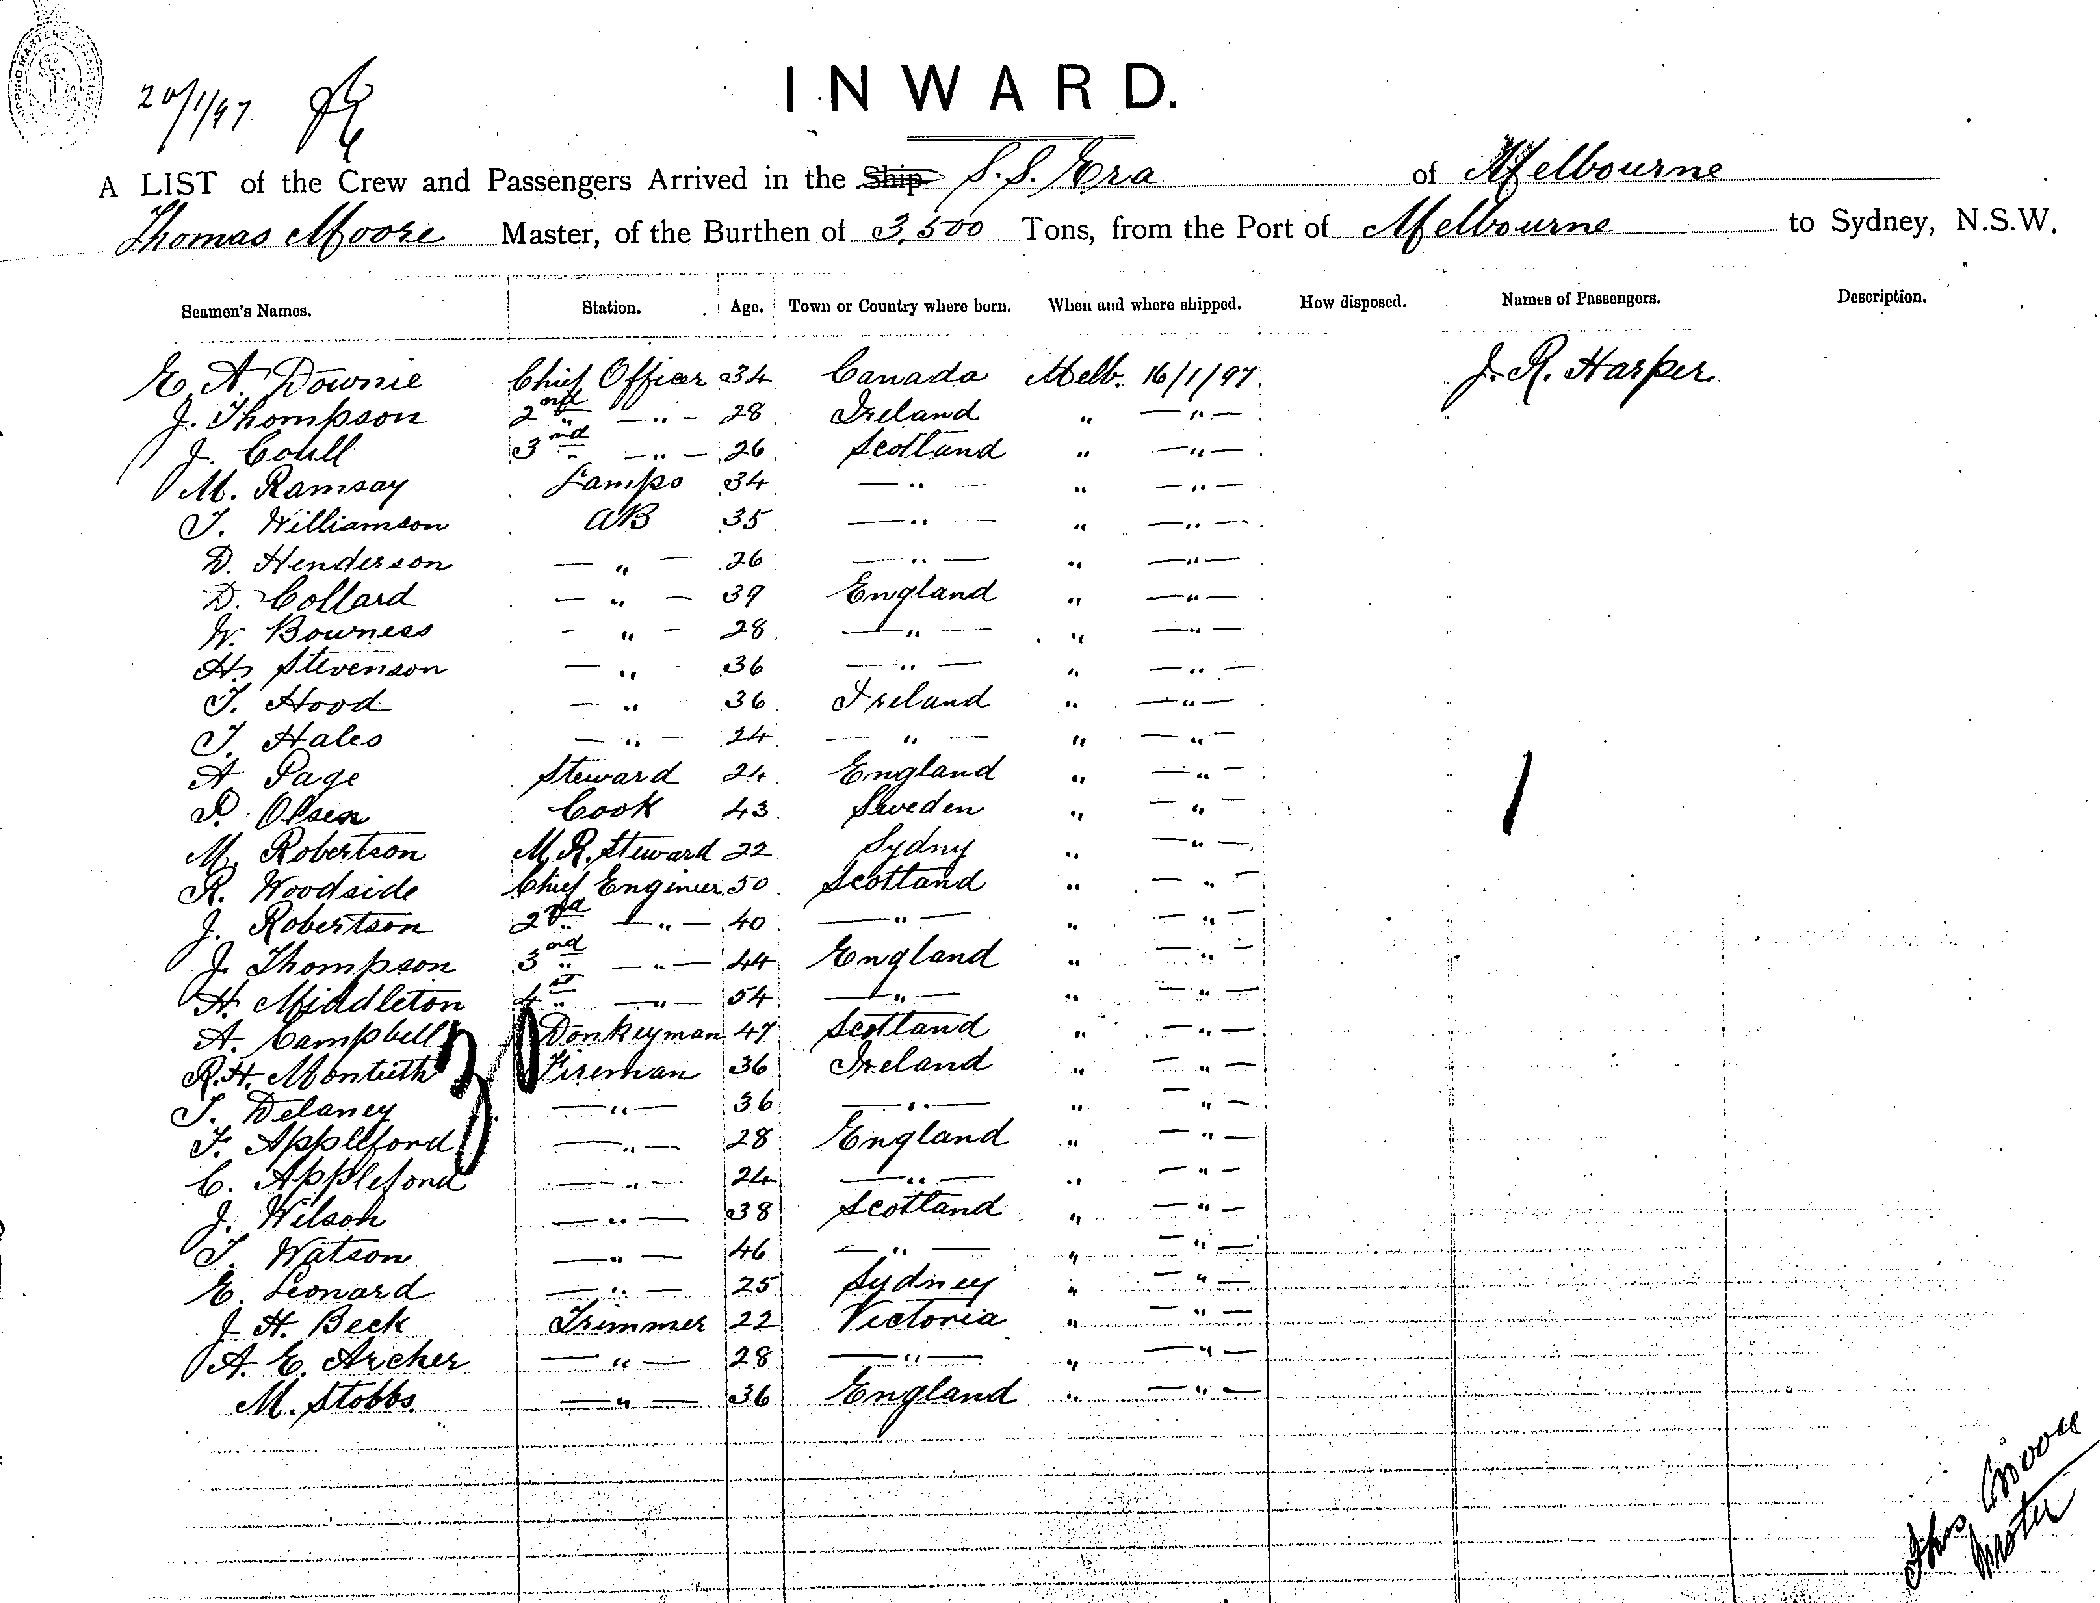 20/1/97
INWARD.
A LIST of the Crew and Passengers Arrived in the Ship S.S. Era of Melbourne
Thomas Moore Master, of the Burthen of 3,500 Tons, from the Port of Melbourne to Sydney, N.S.W.
Seamen's Names. Station. Age. Town or Country where born. When and where shipped. How disposed. Names of Passengers. Description.
E. A. Downie Chief Officer 34 Canada Melb. 16/1/97 J. R. Harper
J. Thompson 2nd — " — 28 Ireland " — " —
J. Coull 3rd — " — 26 Scotland " — " —
M. Ramsay Lamps 34 — " — " — " —
T. Williamson AB 35 — " — " — " —
D. Henderson — " — 26 — " — " — " —
D. Collard — " — 39 England " — " —
W. Bowness — " — 28 — " — " — " —
H. Stevenson — " — 36 — " — " — " —
T. Hood — " — 36 Ireland " — " —
T. Hales — " — 24 — " — " — " —
A Page Steward 24 England " — " —
P. Olsen Cook 43 Sweden " — " —
M. Robertson M.R. Steward 22 Sydny " — " —
R. Woodside Chief Engineer 50 Scotland " — " —
J. Robertson 2nd — " — 40 — " — " — " —
J. Thompson 3rd — " — 44 England " — " —
H. Middleton 4th — " — 54 — " — " — " —
A. Campbell Donkeyman 47 Scotland " — " —
R. H. Montieth Fireman 36 Ireland " — " —
T. Delaney — " — 36 — " — " — " —
F. Appleford — " — 28 England " — " —
C. Appleford — " — 24 — " — " — " —
J. Wilson — " — 38 Scotland " — " —
T. Watson — " — 46 — " — " — " —
E. Leonard — " — 25 Sydney " — " —
J. H. Beck Trimmer 22 Victoria " — " —
A. E. Archer — " — 28 — " — " — " —
M. Stobbs — " — 36 England " — " —
30
1
Thos Moore
Master